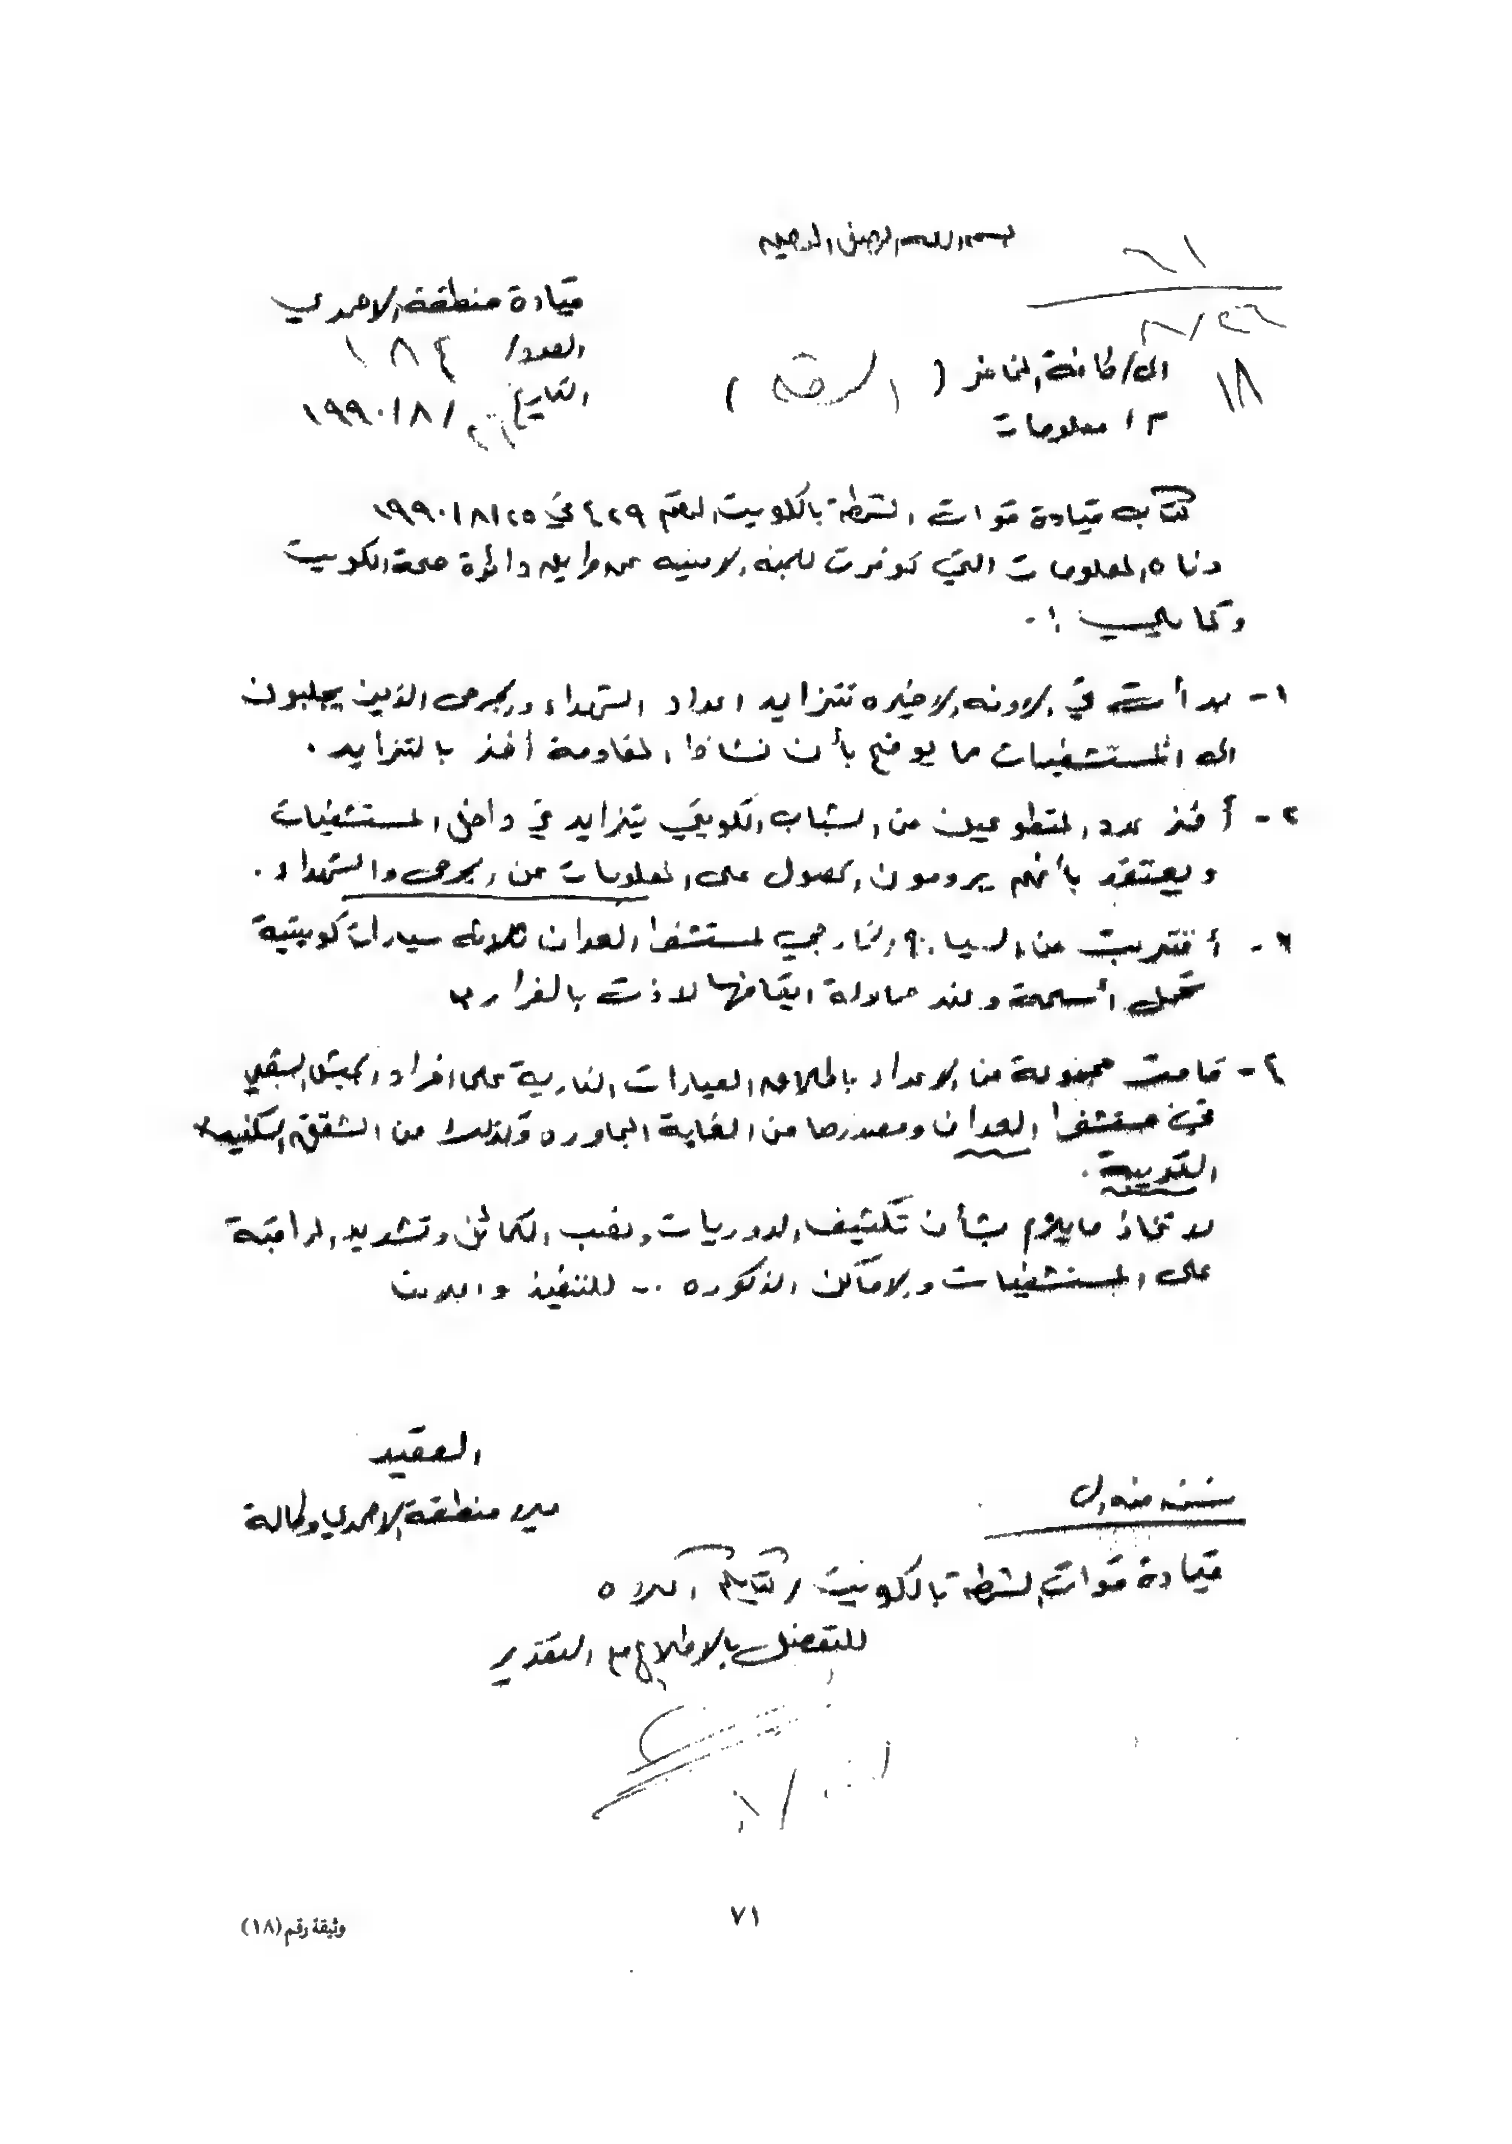 بسم الله الرحمن الرحيم
٢٦/٨
١٨
قيادة منطقة الاحمدي
العدد/ ١٨٤
التاريخ ٢٦/٨/١٩٩٠
الى/كافة المخافر ( الرقه )
م / معلومات
كتاب قيادة قوات الشرطة بالكويت المرقم ٤٢٩ في ٢٥/٨/١٩٩٠
دناه المعلومات التي توفرت للجنه الامنيه عن طريق دائرة صحة الكويت
وكما يلي :-
١- بدأت في الاونه الاخيره تتزايد اعداد الشهداء والجرحى الذين يجلبون
الى المستشفيات مما يوضح بأن نشاط المقاومة أخذ بالتزايد .
٢- أخذ عدد المتطوعين من الشباب الكويتي يتزايد في داخل المستشفيات
ويعتقد بأنهم يرومون الحصول على المعلومات عن الجرحى والشهداء .
٣- أقتربت من السياج الخارجي لمستشفى العدان ثلاثه سيارات كويتية
تحمل أسلحة وعند محاولة ايقافها لاذت بالفرار
٤- قامت مجموعة من الاعداء باطلاق العيارات النارية على افراد الجيش الشعبي
في مستشفى العدان ومصدرها من الغابة المجاوره وكذلك من الشقق السكنيه
القريبة .
لاتخاذ مايلزم بشأن تكثيف الدوريات ونصب الكمائن وتشديد المراقبة
على المستشفيات والاماكن المذكوره .. للتنفيذ واعلامنا
العقيد
مدير منطقة الاحمدي وكالة
نسخه منه الى
قيادة قوات الشرطة بالكويت / كتابكم اعلاه
للتفضل بالاطلاع مع التقدير
٧١
وثيقة رقم (١٨)